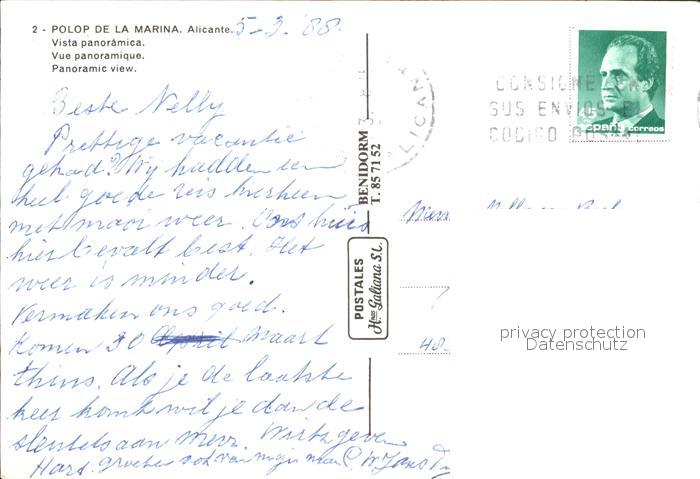 2 - POLOP DE LA MARINA. Alicante.
Vista panorámica.
Vue panoramique.
Panoramic view.
5-3.'88.
Beste Nelly
Prettige vacantie
gehad? Wij hadden een
heel goede reis hierheen
met mooi weer. Ons huis
hier bevalt best. Het
weer is minder.
Vermaken ons goed.
Komen 30 Maart
thuis. Als je de laatste
keer komt wil je dan de
sleutels aan Mevr. Wirtz geven
Hart. groeten ook van mijn man
BENIDORM
T. 85 71 52
POSTALES
Hnos Galiana S.L.
CONSIGNE
SUS ENVIOS EL
CODIGO POSTAL
45
españa correos
48.
privacy protection
Datenschutz